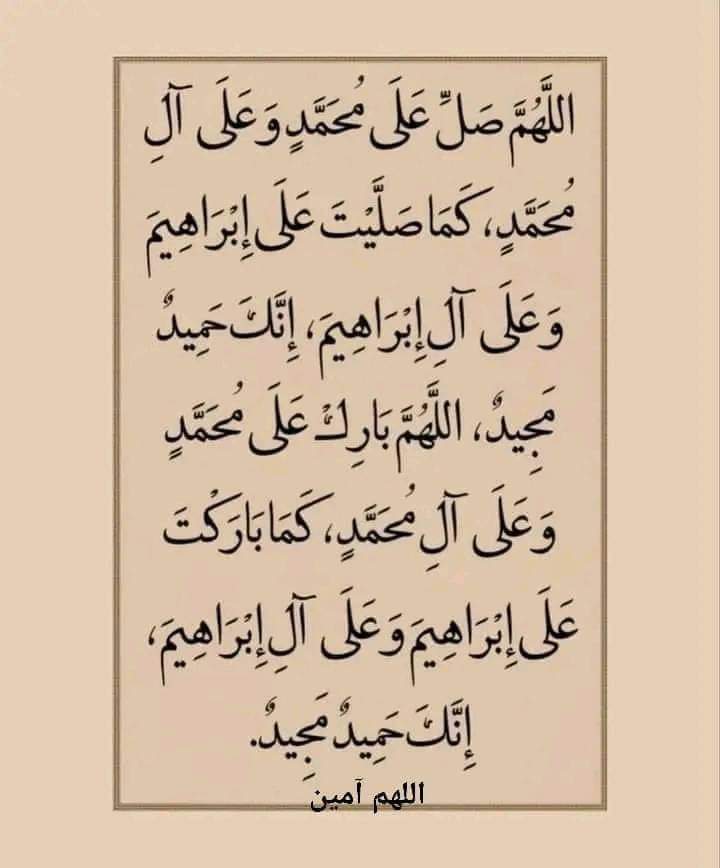 اللَّهُمَّ صَلِّ عَلَى مُحَمَّدٍ وَعَلَى آلِ
مُحَمَّدٍ، كَمَا صَلَّيْتَ عَلَى إِبْرَاهِيمَ
وَعَلَى آلِ إِبْرَاهِيمَ، إِنَّكَ حَمِيدٌ
مَجِيدٌ، اللَّهُمَّ بَارِكْ عَلَى مُحَمَّدٍ
وَعَلَى آلِ مُحَمَّدٍ، كَمَا بَارَكْتَ
عَلَى إِبْرَاهِيمَ وَعَلَى آلِ إِبْرَاهِيمَ،
إِنَّكَ حَمِيدٌ مَجِيدٌ.
اللهم آمين